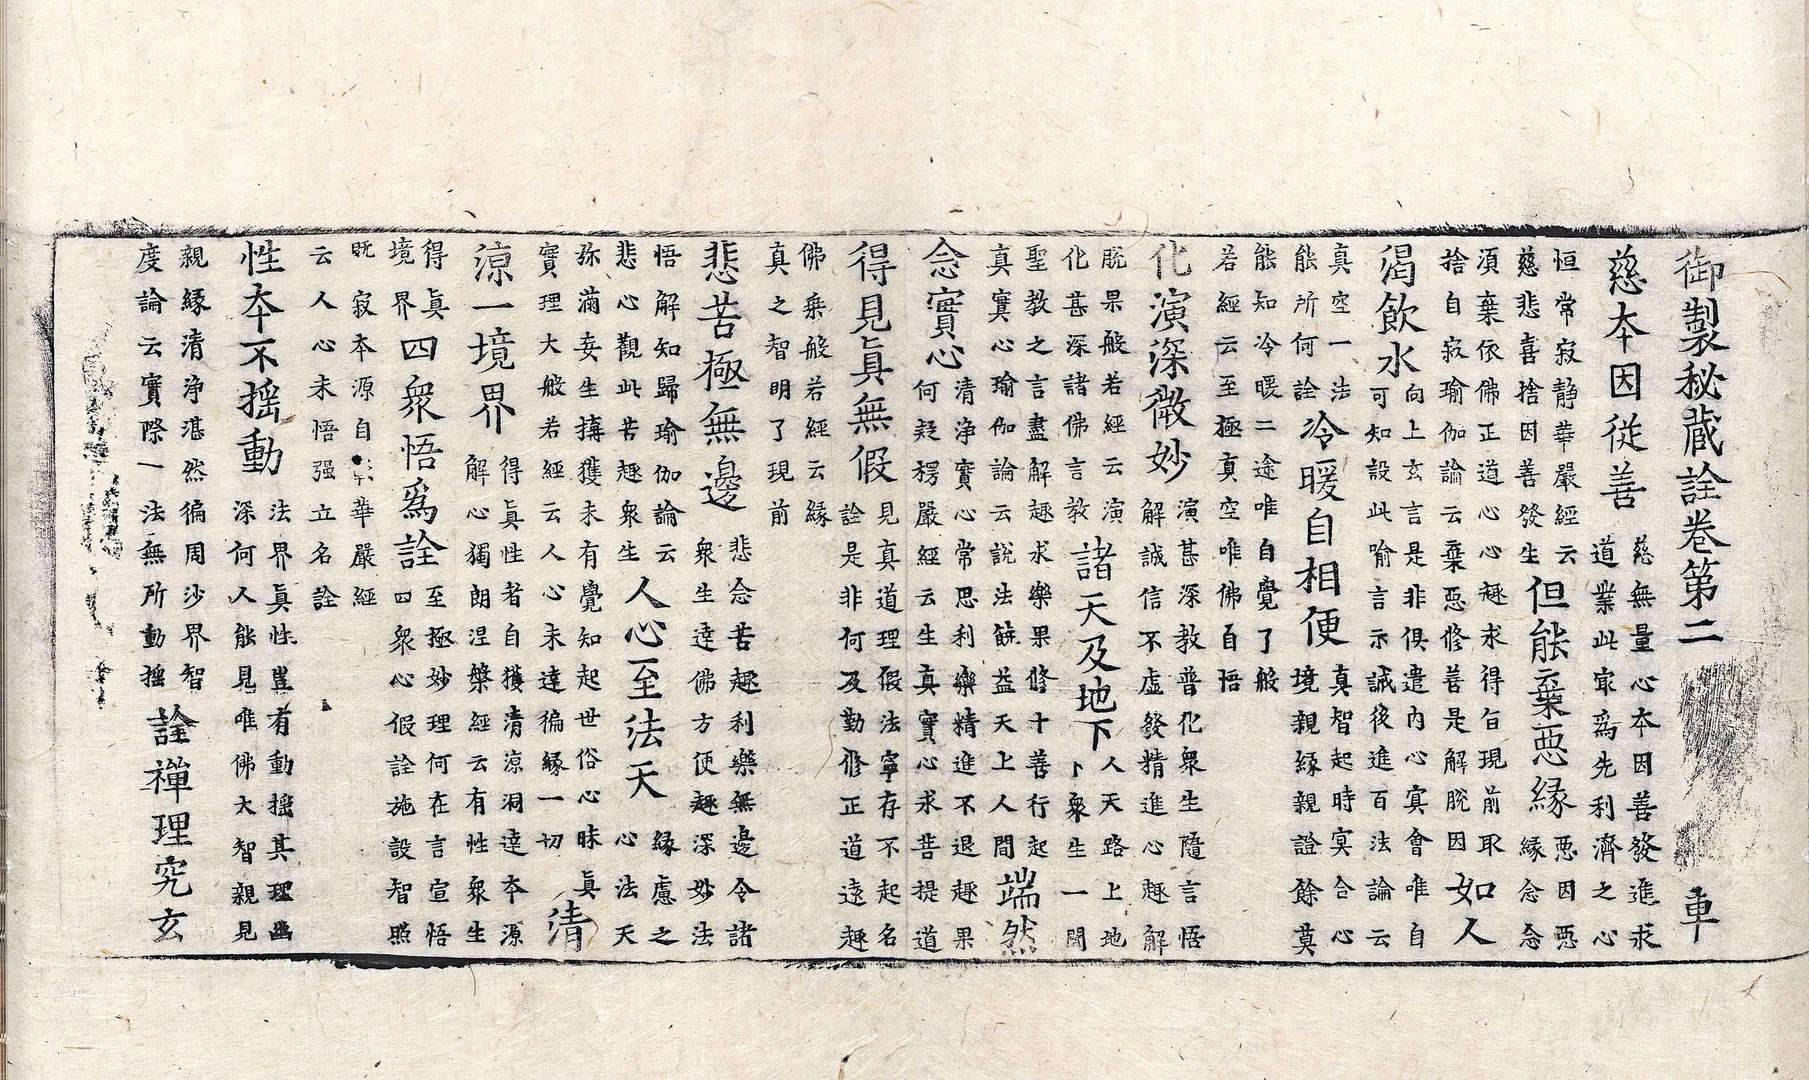 御製秘蔵詮卷第二 車
慈本因従善
慈無量心本因善發進求
道業此家爲先利濟之心
恒常寂静華嚴經云
慈悲喜捨因善發生
但能棄惡縁
惡因惡
縁念念
湏棄依佛正道心心趣求得自現前取
捨自寂瑜伽論云棄惡修善是解脫因
如人
渴飲水
向上玄言是非俱遣内心寞會唯自
可知設此喻言示誡後進百法論云
真空一法
能所何詮
冷暖自相便
真智起時冥合心
境親縁親證餘莫
能知冷暖二途唯自覺了般
若經云至極真空唯佛自悟
化演深微妙
演甚深教普化衆生隨言悟
解誠信不虛發精進心趣解
脫果般若經云演
化甚深諸佛言教
諸天及地下
人天路上地
下衆生一聞
聖教之言盡解趣求樂果修十善行起
真實心瑜伽論云說法饒益天上人間
端然
念實心
清浄實心常思利樂精進不退趣果
何疑楞嚴經云生真實心求菩提道
得見真無假
見真道理假法寧存不起名
詮是非何及勤修正道遠趣
佛乘般若經云縁
真之智明了現前
悲苦極無邊
悲念苦趣利樂無邊令諸
衆生達佛方便趣深妙法
悟解知歸瑜伽論云
悲心觀此苦趣衆生
人心至法天
縁慮之
心法天
弥滿妄生搆獲未有覺知起世俗心昧真
實理大般若經云人心未達徧縁一切
清
涼一境界
得真性者自獲清涼洞達本源
解心獨朗涅槃經云有性衆生
得真
境界
四衆悟爲詮
至極妙理何在言宣悟
四衆心假詮施設智照
既寂本源自華嚴經
云人心未悟强立名詮
性本不揺動
法界真性豈有動揺其理幽
深何人能見唯佛大智親見
親縁清浄湛然徧周沙界智
度論云實際一法無所動揺
詮禪理究玄